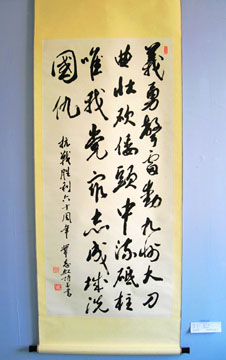 義勇聲雷動九州大刀
曲壯砍倭頭中流砥柱
唯我党衆志成城洗
國仇
抗戰勝利六十周年